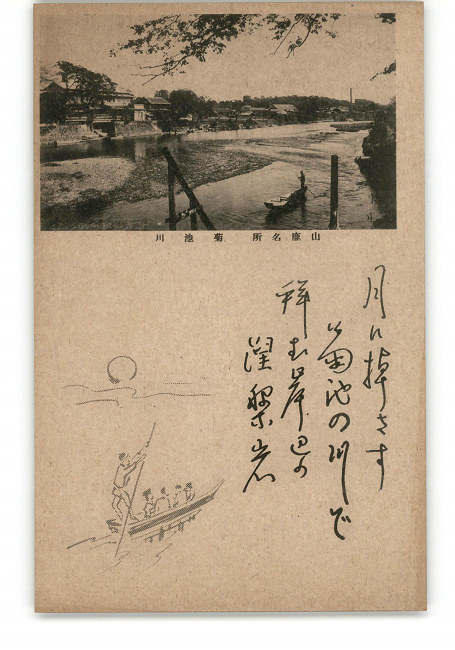 山鹿名所 菊池川
月に棹さす
菊池の川で
拝む岸辺の
涅槃岩